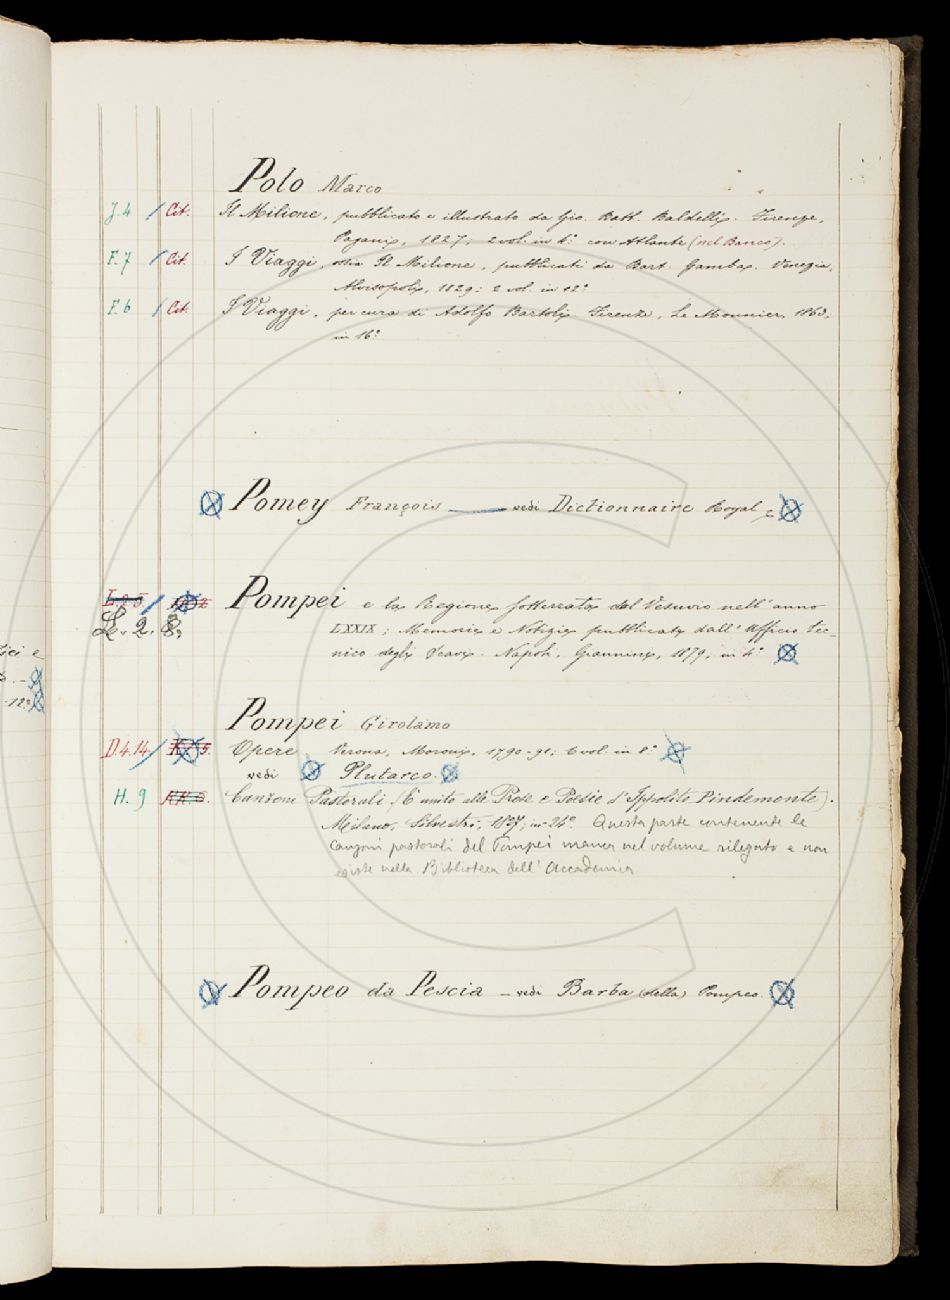 Polo Marco
J. 4 / Cit. Il Milione, pubblicato e illustrato da Gio. Batt. Baldelli. Firenze,
Pagani, 1827; 2 vol. in 4.° con Atlante (nel Banco).
F. 7 / Cit. I Viaggi, ossia Il Milione, pubblicati da Bart. Gamba. Venezia,
Alvisopoli, 1829; 2 vol. in 12.°
F. 6 / Cit. I Viaggi, per cura di Adolfo Bartoli. Firenze, Le Monnier, 1863,
in 16.°
Pomey François — vedi Dictionnaire Royal
L. 2. 5 / Pompei e la Regione sotterrata dal Vesuvio nell'anno
L. 2. 8. LXXIX; Memorie e Notizie pubblicate dall'Ufficio tec-
nico degli Scavi. Napoli, Giannini, 1879, in 4.°
Pompei Girolamo
D. 4. 14. / Opere Verona, Moroni, 1790-91; 6 vol. in 8.°
vedi Plutarco.
H. 9 Canzoni Pastorali (È unito alle Prose e Poesie d'Ippolito Pindemonte).
Milano, Silvestri, 1827; in 24.° Questa parte contenente le
Canzoni pastorali del Pompei manca nel volume rilegato e non
esiste nella Biblioteca dell'Accademia
Pompeo da Pescia — vedi Barba (della) Pompeo.
ici e
-12.°